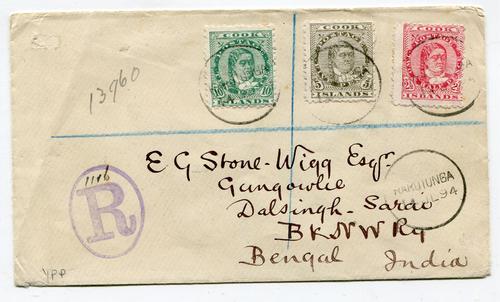 COOK
POSTAGE
10 10
ISLANDS
COOK
POSTAGE
5 5
ISLANDS
COOK
POSTAGE
ISLANDS
13960
1116
R
E G Stone-Wigg Esqr
Gungowlie
Dalsingh-Sarai
B & N W Ry
Bengal India
RAROTONGA
JL 94
YPP